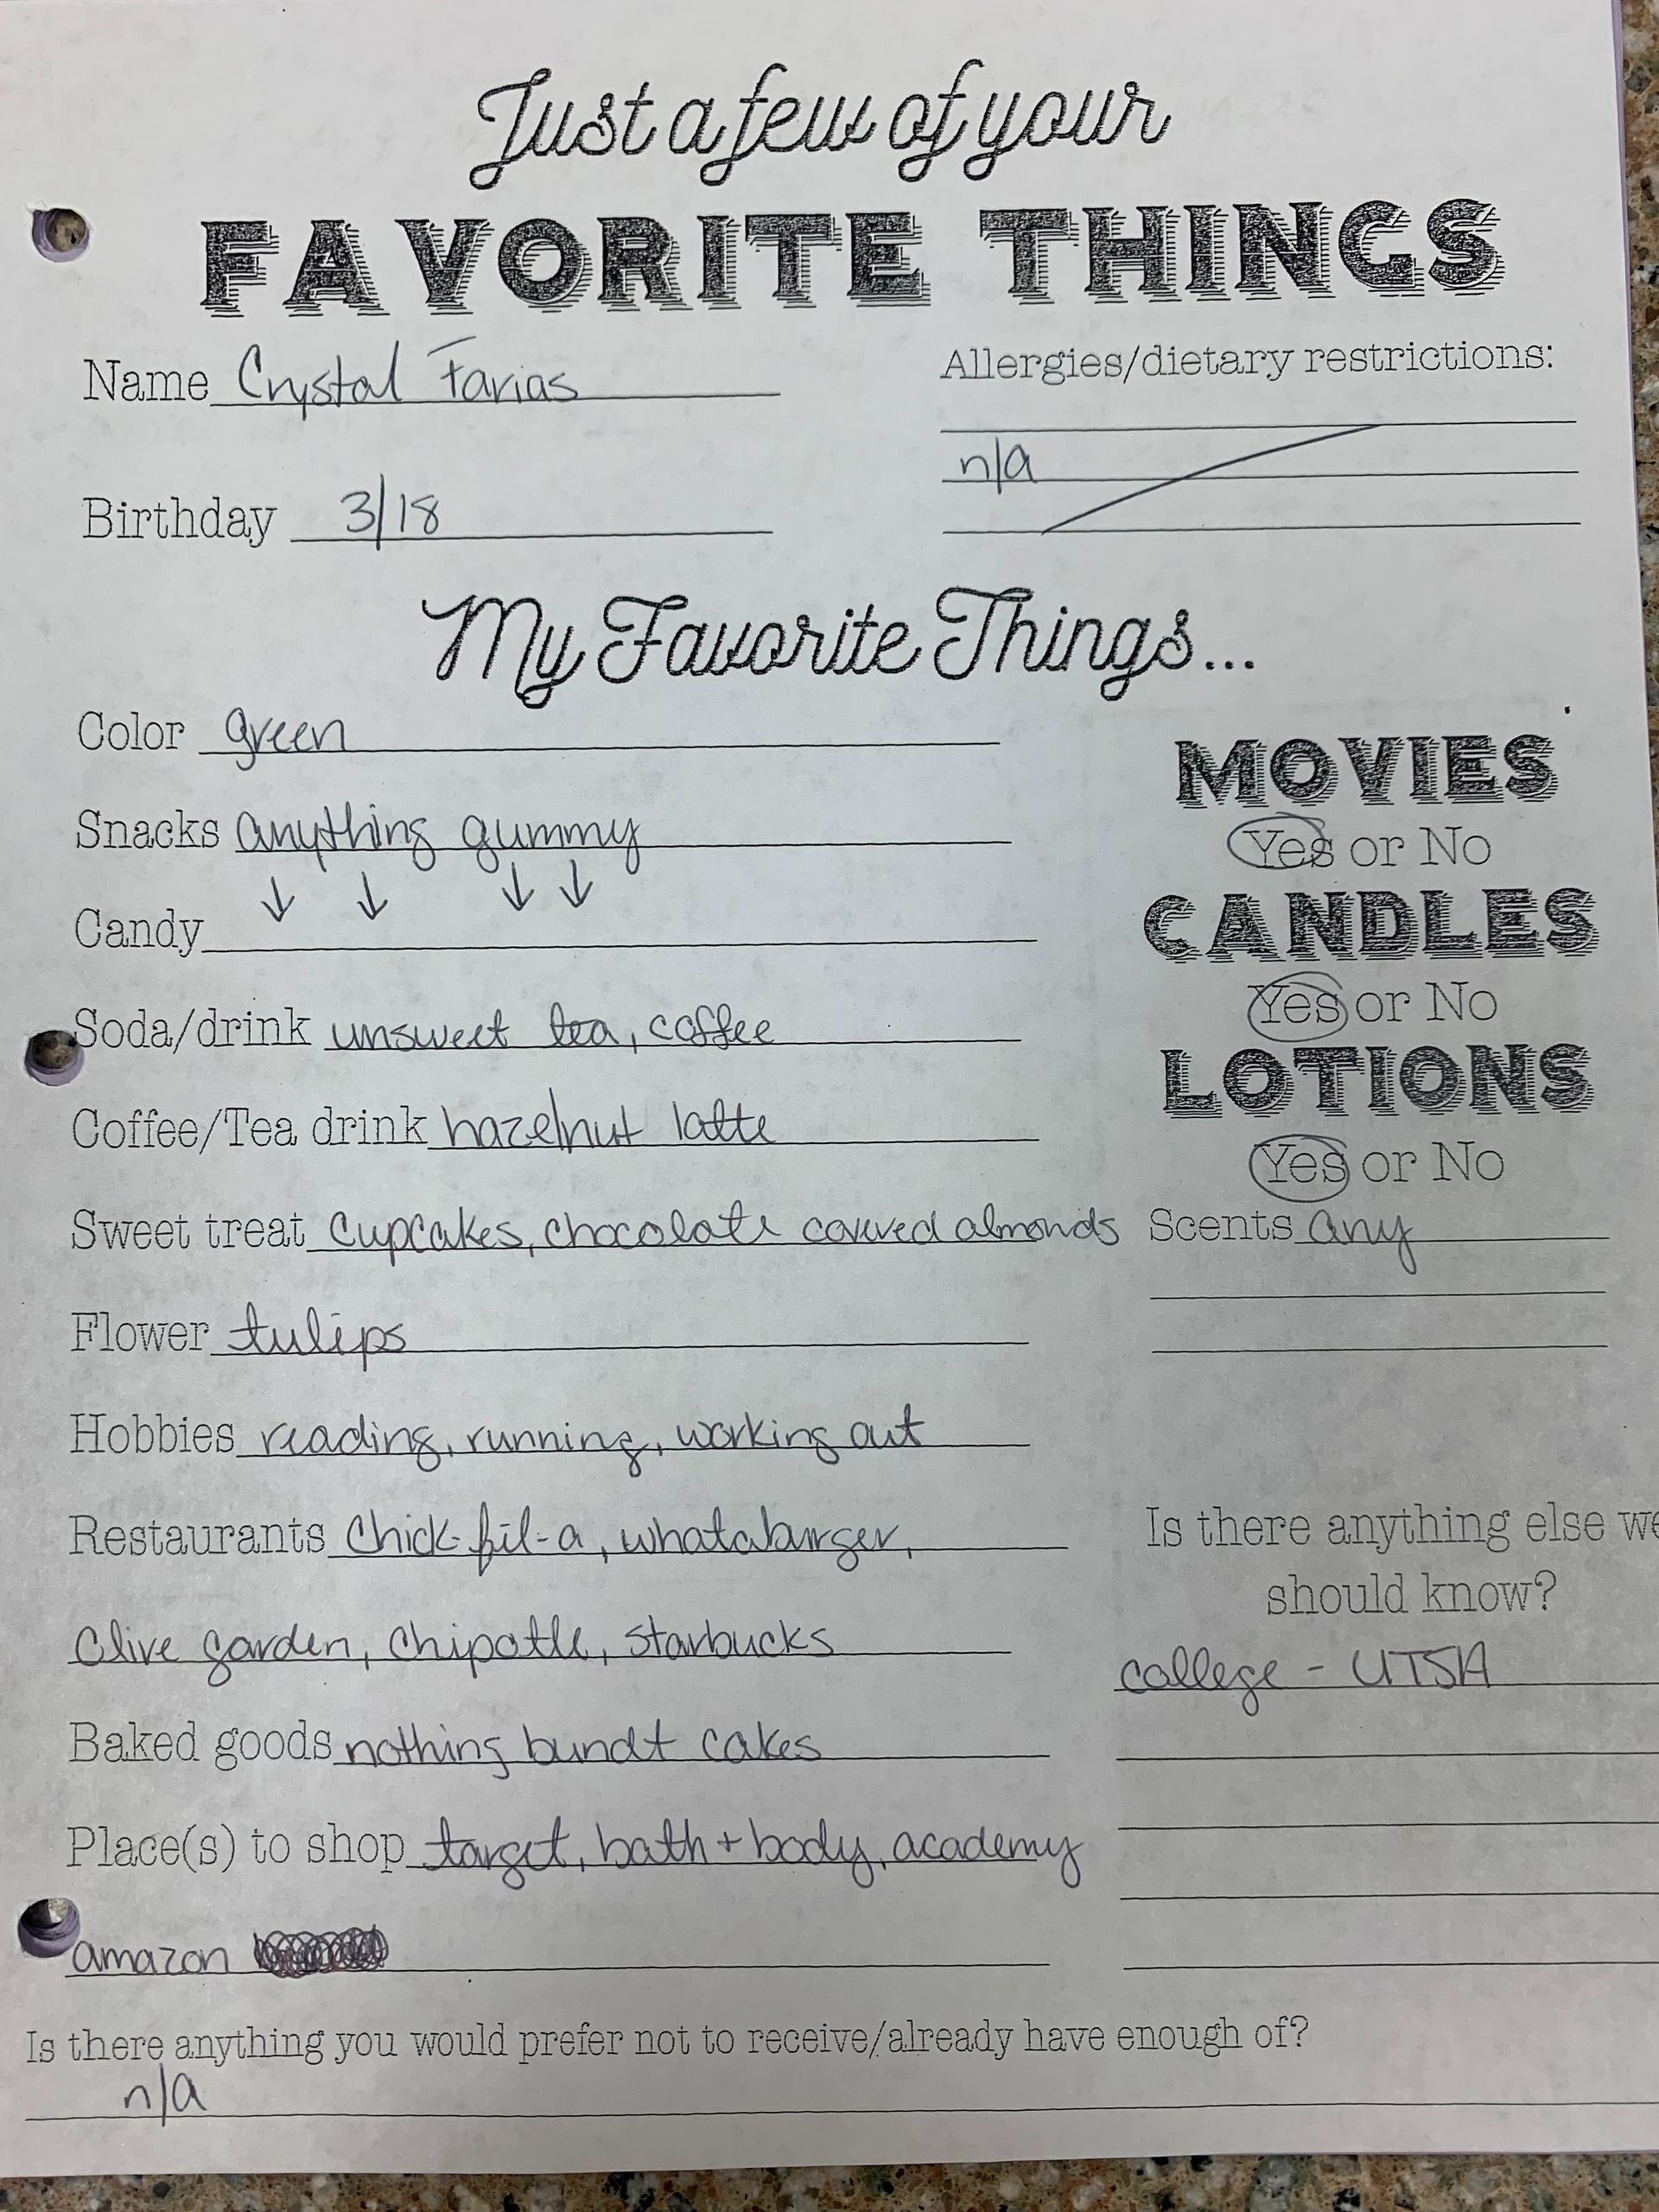 Just a few of your
FAVORITE THINGS
Name Crystal Farias
Birthday 3/18
Allergies/dietary restrictions:
n/a
My Favorite Things...
Color green
Snacks anything gummy
↓ ↓ ↓ ↓
Candy
Soda/drink unsweet tea, coffee
Coffee/Tea drink hazelnut latte
Sweet treat cupcakes, chocolate covered almonds
Flower tulips
Hobbies reading, running, working out
Restaurants chick-fil-a, whataburger,
Olive garden, chipotle, starbucks
Baked goods nothing bundt cakes
Place(s) to shop target, bath + body, academy
amazon
MOVIES
Yes or No
CANDLES
Yes or No
LOTIONS
Yes or No
Scents any
Is there anything else we
should know?
college - UTSA
Is there anything you would prefer not to receive/already have enough of?
n/a